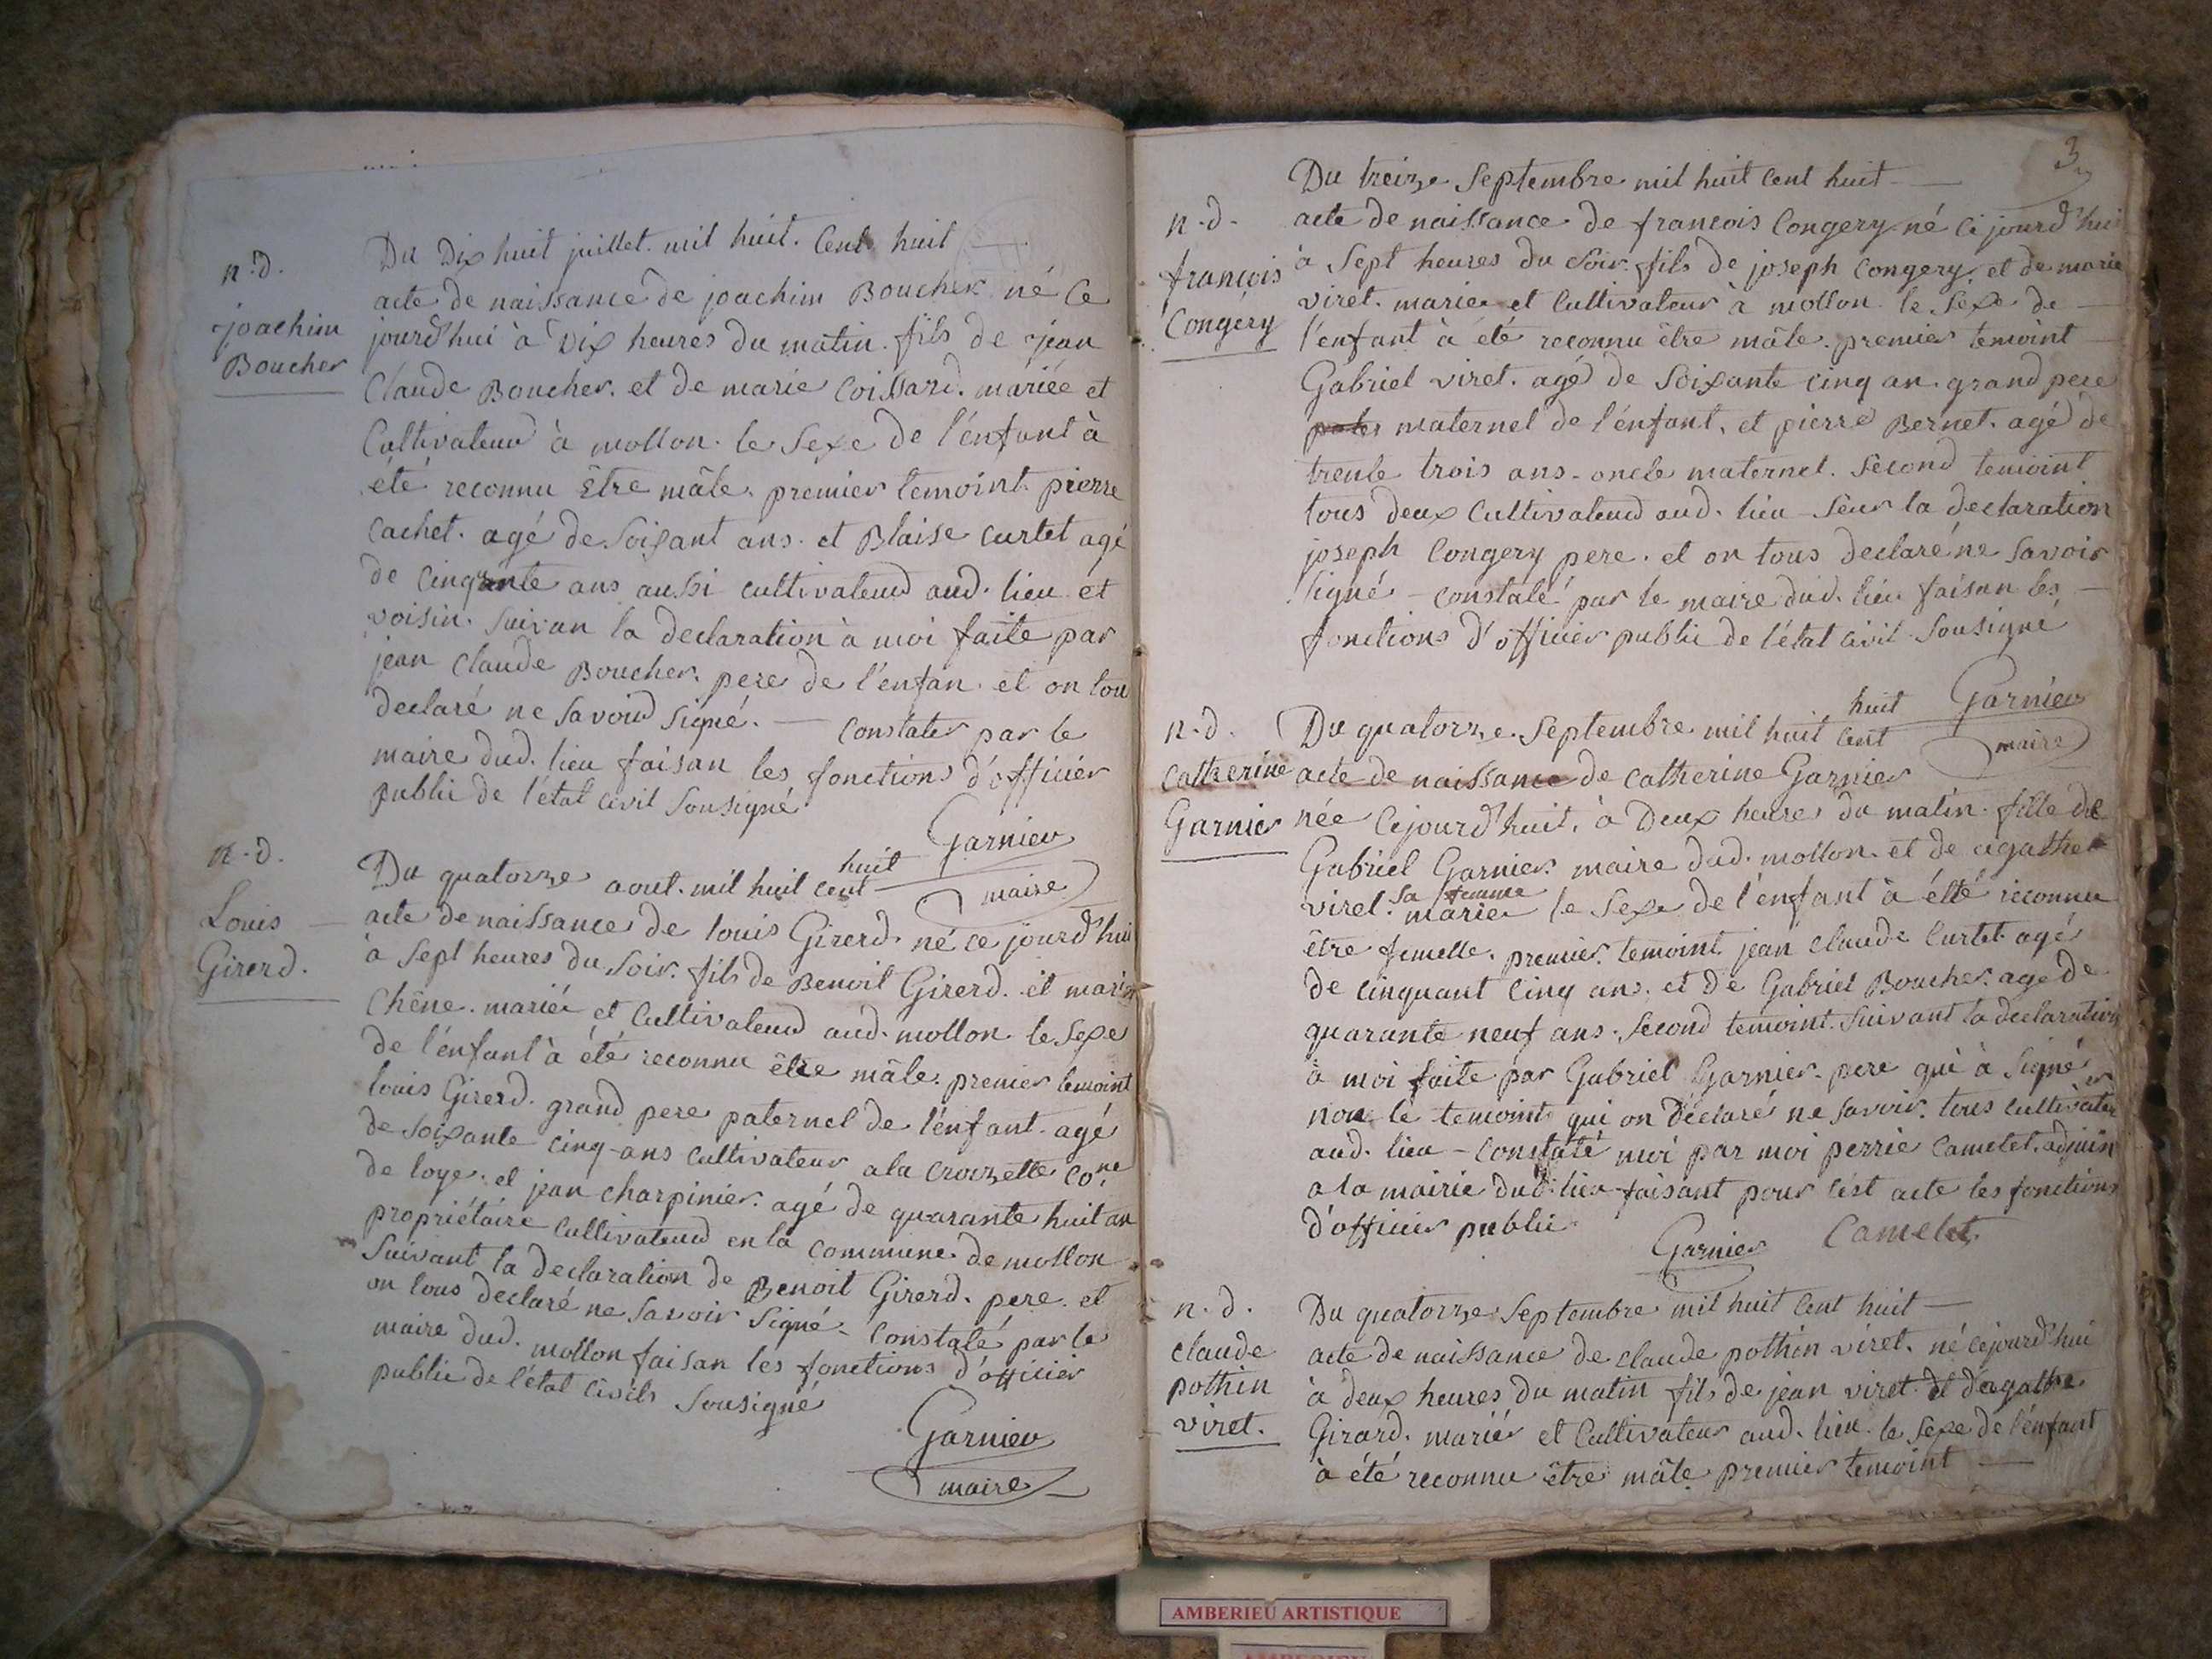 n.d.
joachim
Boucher
Du Dix huit juillet. mil huit. Cent huit
acte de naissance de joachim Boucher né Ce
jourd'hui à Dix heures du matin. fils de jean
Claude Boucher. et de marie Coissard. mariée et
Cultivateur à mollon. le Sexe de l'énfant à
été reconnu Être mâle. premier temoint pierre
Cachet. agé de Soixant ans. et Blaise Curtet agé
de Cinqante ans aussi cultivateur aud. lieu et
voisin. Suivan la declaration à moi faite par
jean Claude Boucher. pere de l'enfan. et on tou
declaré ne Savoir Signé. — Constater par le
maire dud. lieu faisan les fonctions d'officier
public de l'état Civil Sousigné
Garnier
maire
n.d.
Louis
Girerd.
Du quatorze aout. mil huit Cent huit
acte de naissance de louis Girerd. né ce jourd'hui
à Sept heures du Soir. fils de Benoit Girerd. et marie
Chêne. mariée et Cultivateur aud. mollon. le Sexe
de l'énfant à été reconnu être mâle. premier temoint
louis Girerd. grand pere paternel de l'énfant. agé
de Soixante Cinq-ans Cultivateur a la Crouzette Cone
de loye. et jean Charpinier. agé de quarante huit an
propriétaire Cultivateur en la Commune de mollon
Suivant la declaration de Benoit Girerd. pere. et
on tous declaré ne Savoir Signé - Constaté par le
maire dud. mollon faisan les fonctions d'officier
public de l'état Civils Sousigné
Garnier
maire
3
n.d.
françois
Congery
Du treize Septembre mil huit Cent huit —
acte de naissance de francois Congery né Ci jourd'hui
à Sept heures du Soir. fils de joseph Congery et de marie
viret. mariée et Cultivateur à mollon. le Sexe de
l'énfant à été reconnu être mâle. premier temoint
Gabriel viret. agé de Soixante Cinq an. grand pere
pater maternel de l'énfant. et pierre Bernet. agé de
trente trois ans. oncle maternel. Second temoint
tous deux Cultivateur aud. lieu - Seur la declaration
joseph Congery pere. et on tous declaré ne Savoir
Signé - Constaté par le maire dud. lieu faisan les —
fonctions d'officier public de l'état Civil Sousigné
Garnier
maire
n.d.
Catherine
Garnier
Du quatorze. Septembre mil huit Cent huit
acte de naissance de Catherine Garnier
née Cejourd'huit. à Deux heures du matin. fille de
Gabriel Garnier. maire dud. mollon. et de agathe
viret. marie Sa femme le Sexe de l'énfant à élté reconnu
être femelle. premier temoint jean Claude Curtet agé
de Cinquant Cinq ans. et de Gabriel Boucher. agé de
quarante neuf ans. Second temoint. Suivant la declaration
à moi faite par Gabriel Garnier. pere qui à Signé
non le temoint qui on déclaré ne Savoir. tous Cultivater
aud. lieu - Constaté moi par moi perrie Camelet. adjoin
a la mairie dud. lieu faisant pour cést acte les fonctions
d'officier public
Garnier Camelet
n.d.
claude
pothin
viret.
Du quatorze Septembre mil huit Cent huit —
acte de naissance de claude pothin viret. né cejourd'hui
à deux heures du matin fils de jean viret. et d'agathe
Girard. mariée et Cultivateur aud. lieu. le Sexe de l'énfant
à été reconnu être mâle premier temoint —
AMBERIEU ARTISTIQUE
AMBERIEU